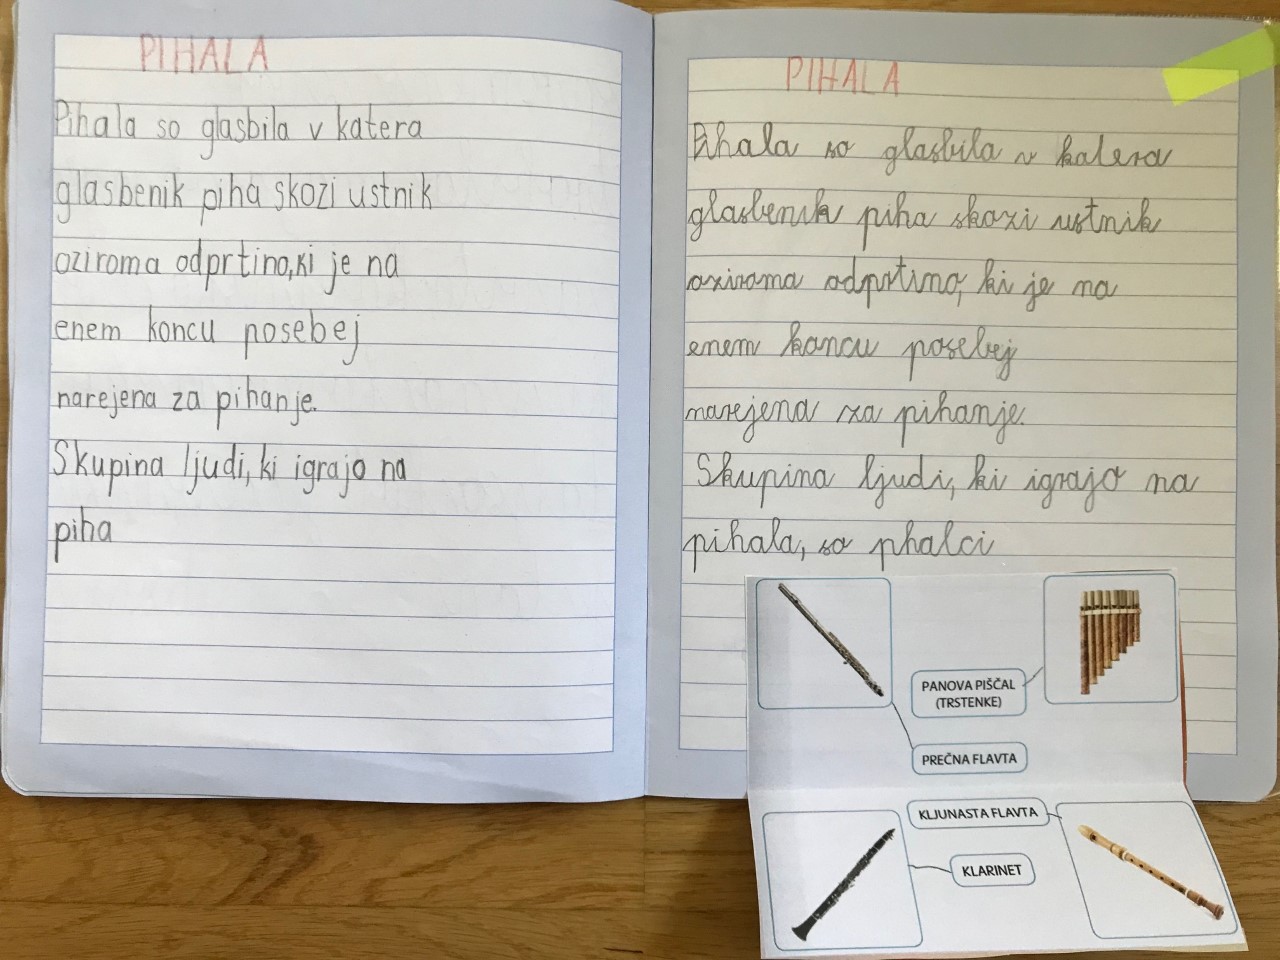 PIHALA
Pihala so glasbila v katera
glasbenik piha skozi ustnik
oziroma odprtino, ki je na
enem koncu posebej
narejena za pihanje.
Skupina ljudi, ki igrajo na
piha
PIHALA
Pihala so glasbila v katera
glasbenik piha skozi ustnik
oziroma odprtino, ki je na
enem koncu posebej
narejena za pihanje.
Skupina ljudi, ki igrajo na
pihala, so phalci
PANOVA PIŠČAL
(TRSTENKE)
PREČNA FLAVTA
KLJUNASTA FLAVTA
KLARINET